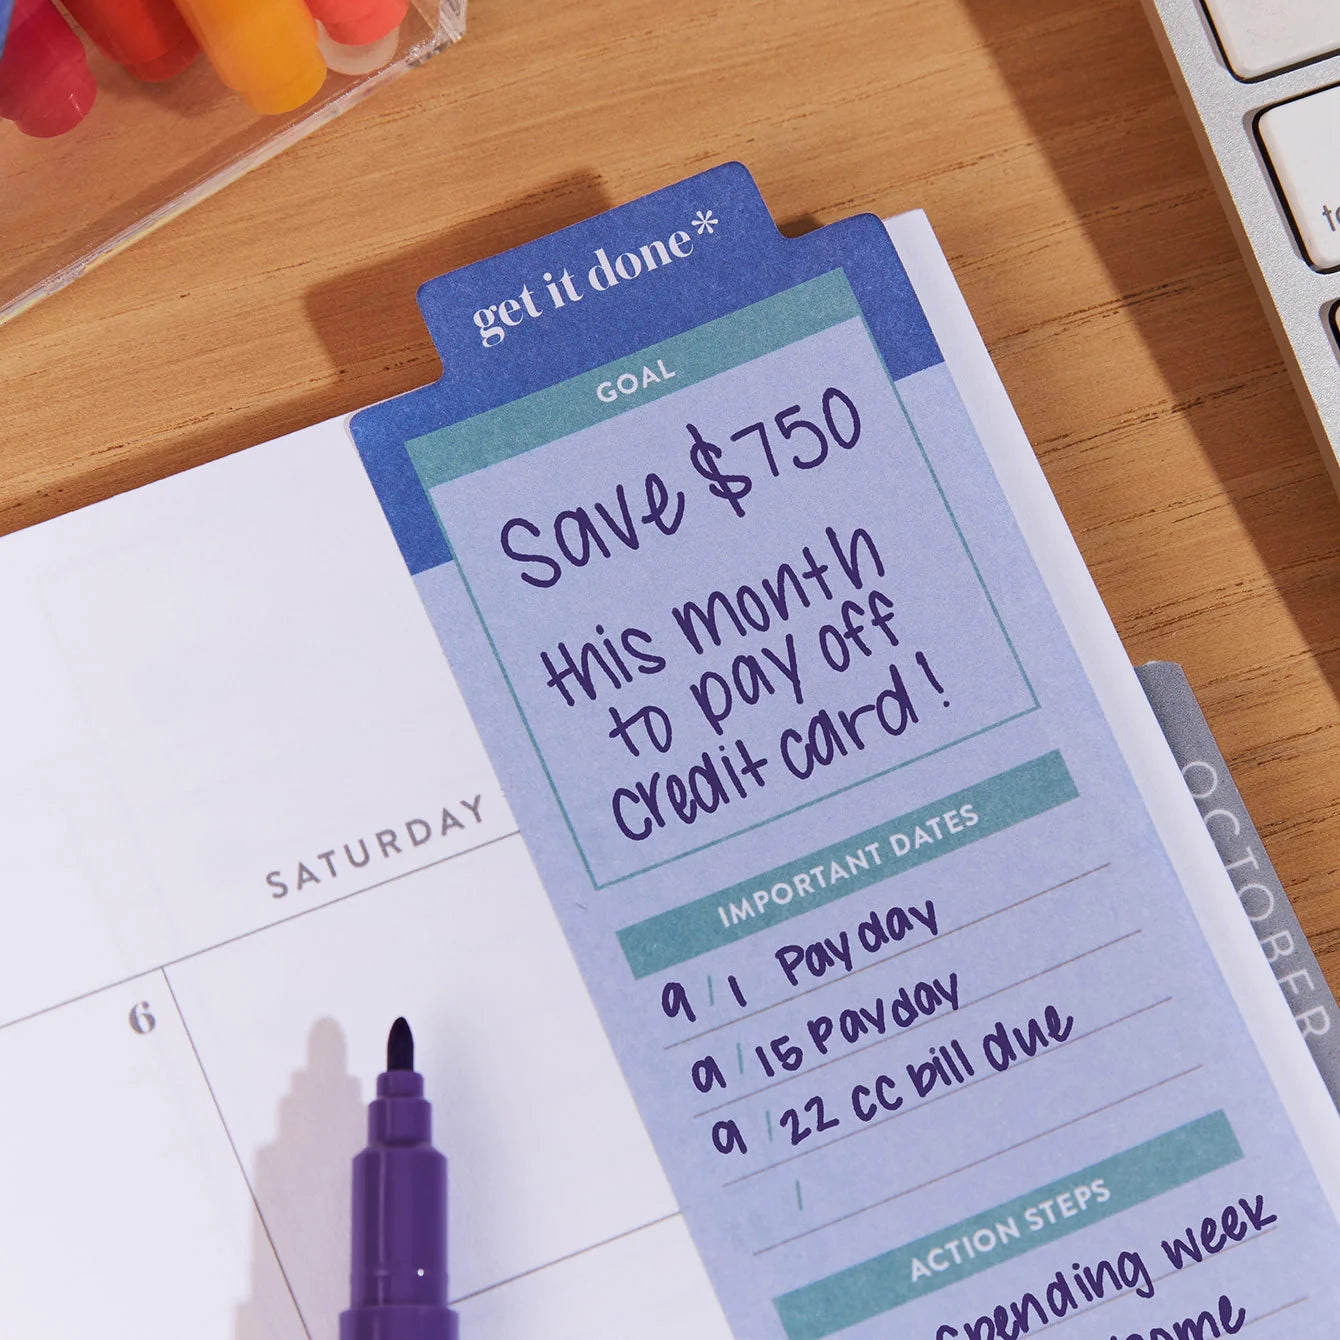 get it done*
GOAL
Save $750
this month
to pay off
credit card!
IMPORTANT DATES
9/1 Payday
9/15 Payday
9/22 CC bill due
/
ACTION STEPS
spending week
SATURDAY
6
OCTOBER